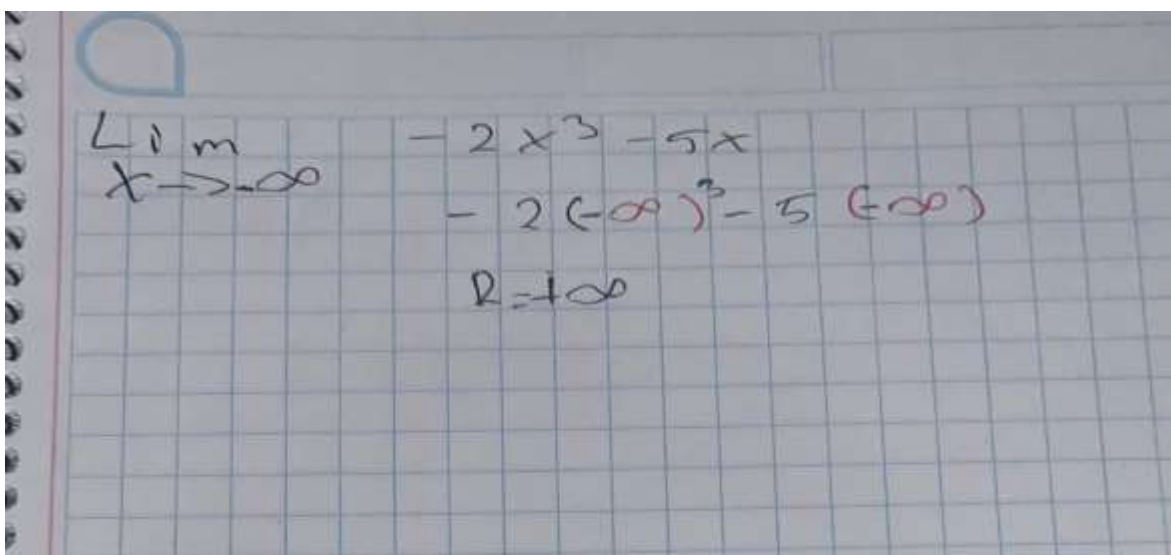 Lim -2x³ -5x
x->-∞
-2(-∞)³-5(-∞)
R=+∞